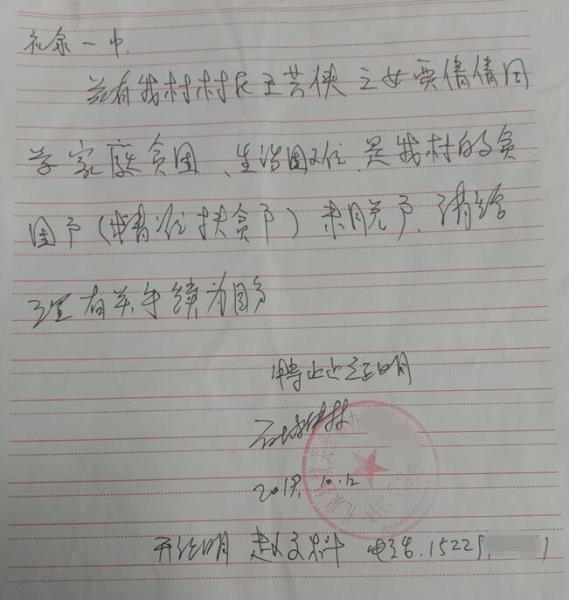 礼泉一中.
兹有我村村民王芸侠之女贾倩倩同
学家庭贫困、生活困难、是我村的贫
困户(精准扶贫户)未脱户.请给
理有关手续为盼
特此证明
村
10.12
开证明 赵文科 电话.15229